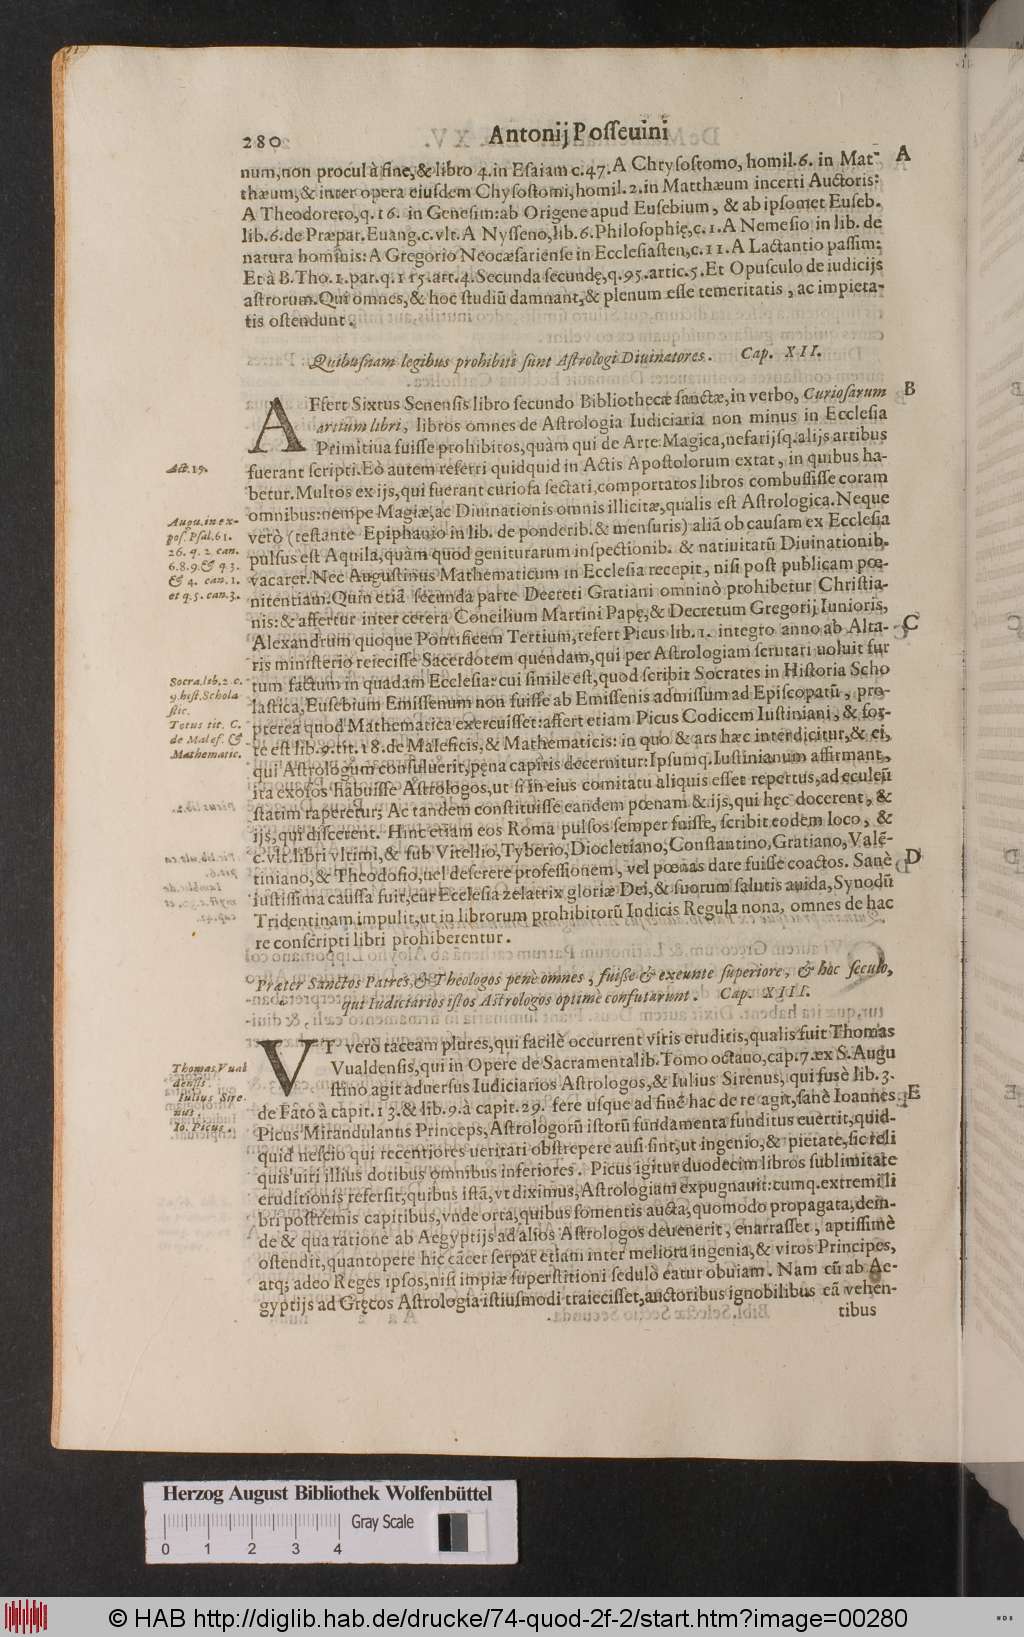 280
Antonij Posseuini
num, non procul à fine, & libro 4. in Esaiam c. 47. A Chrysostomo, homil. 6. in Mat- A
thæum, & inter opera eiusdem Chysostomi, homil. 2. in Matthæum incerti Auctoris:
A Theodoreto, q. 16. in Genesim: ab Origene apud Eusebium, & ab ipsomet Euseb.
lib. 6. de Præpar. Euang. c. vlt. A Nysseno, lib. 6. Philosophię, c. 1. A Nemesio in lib. de
natura hominis: A Gregorio Neocæsariense in Ecclesiasten, c. 11. A Lactantio passim:
Et à B. Tho. 1. par. q. 115. art. 4. Secunda secundę, q. 95. artic. 5. Et Opusculo de iudicijs
astrorum. Qui omnes, & hoc studiū damnant, & plenum esse temeritatis, ac impieta-
tis ostendunt.
Quibusnam legibus prohibiti sunt Astrologi Diuinatores. Cap. XII.
AFfert Sixtus Senensis libro secundo Bibliothecæ sanctæ, in verbo, Curiosarum B
artium libri, libros omnes de Astrologia Iudiciaria non minus in Ecclesia
Primitiua fuisse prohibitos, quàm qui de Arte Magica, nefarijsq. alijs artibus
Act. 19.
fuerant scripti. Eò autem referri quidquid in Actis Apostolorum extat, in quibus ha-
betur. Multos ex ijs, qui fuerant curiosa sectati, comportatos libros combussisse coram
omnibus: nempe Magiæ, ac Diuinationis omnis illicitæ, qualis est Astrologica. Neque
Augu. in ex-
pos. Psal. 61.
26. q. 2. can.
6. 8. 9. & q. 3.
& 4. can. 1.
et q. 5. can. 3.
verò (testante Epiphanio in lib. de ponderib. & mensuris) aliā ob causam ex Ecclesia
pulsus est Aquila, quàm quod geniturarum inspectionib. & natiuitatū Diuinationib.
vacaret. Nec Augustinus Mathematicum in Ecclesia recepit, nisi post publicam pœ-
nitentiam. Quin etiā secunda parte Decreti Gratiani omninò prohibetur Christia-
nis: & affertur inter cetera Concilium Martini Papę, & Decretum Gregorij Iunioris,
Alexandrum quoque Pontificem Tertium, refert Picus lib. 1. integro anno ab Alta- C
ris ministerio reiecisse Sacerdotem quendam, qui per Astrologiam scrutari uoluit fur
tum factum in quadam Ecclesia: cui simile est, quod scribit Socrates in Historia Scho
Socra. lib. 2. c.
9. hist. Schola
stic.
Totus tit. C.
de Malef. &
Mathematic.
lastica, Eusebium Emissenum non fuisse ab Emissenis admissum ad Episcopatū, pro-
pterea quod Mathematica exercuisset: affert etiam Picus Codicem Iustiniani, & for-
te est lib. 9. tit. 18. de Maleficis, & Mathematicis: in quo & ars hæc interdicitur, & ei,
qui Astrologum consuluerit, pęna capitis decernitur: Ipsumq. Iustinianum affirmant,
ita exosos habuisse Astrologos, ut si in eius comitatu aliquis esset repertus, ad eculeū
statim raperetur; Ac tandem constituisse eandem pœnam & ijs, qui hęc docerent, &
ijs, qui discerent. Hinc etiam eos Roma pulsos semper fuisse, scribit eodem loco, &
c. vlt. libri vltimi, & sub Vitellio, Tyberio, Diocletiano, Constantino, Gratiano, Valē-
tiniano, & Theodosio, uel deserere professionem, vel pœnas dare fuisse coactos. Sanè D
iustissima caussa fuit, cur Ecclesia zelatrix gloriæ Dei, & suorum salutis auida, Synodū
Tridentinam impulit, ut in librorum prohibitorū Indicis Regula nona, omnes de hac
re conscripti libri prohiberentur.
Præter Sanctos Patres, & Theologos pene omnes, fuisse & exeunte superiore, & hoc seculo,
qui Iudiciarios istos Astrologos optimè confutarunt. Cap. XIII.
VT verò taceam plures, qui facilè occurrent viris eruditis, qualis fuit Thomas
Thomas Vual
densis.
Iulius Sire
nus.
Io. Picus.
Vualdensis, qui in Opere de Sacramentalib. Tomo octauo, cap. 7. ex S. Augu
stino agit aduersus Iudiciarios Astrologos, & Iulius Sirenus, qui fusè lib. 3.
de Fato à capit. 13. & lib. 9. à capit. 29. fere usque ad finē hac de re agit, sanè Ioannes E
Picus Mirandulanus Princeps, Astrologorū istorū fundamenta funditus euertit, quid-
quid nescio qui recentiores ueritati obstrepere ausi sint, ut ingenio, & pietate, sic reli
quis uiri illius dotibus omnibus inferiores. Picus igitur duodecim libros sublimitate
eruditionis refersit, quibus istā, vt diximus, Astrologiam expugnauit: cumq. extremi li
bri postremis capitibus, vnde orta, quibus fomentis aucta, quomodo propagata, dein-
de & qua ratione ab Aegyptijs ad alios Astrologos deuenerit, enarrasset, aptissimè
ostendit, quantopere hic cācer serpat etiam inter meliora ingenia, & viros Principes,
atq; adeo Reges ipsos, nisi impiæ superstitioni sedulò eatur obuiam. Nam cū ab Ae-
gyptijs ad Gręcos Astrologia istiusmodi traiecisset, auctoribus ignobilibus eā vehen-
tibus
Herzog August Bibliothek Wolfenbüttel
Gray Scale
0 1 2 3 4
© HAB http://diglib.hab.de/drucke/74-quod-2f-2/start.htm?image=00280